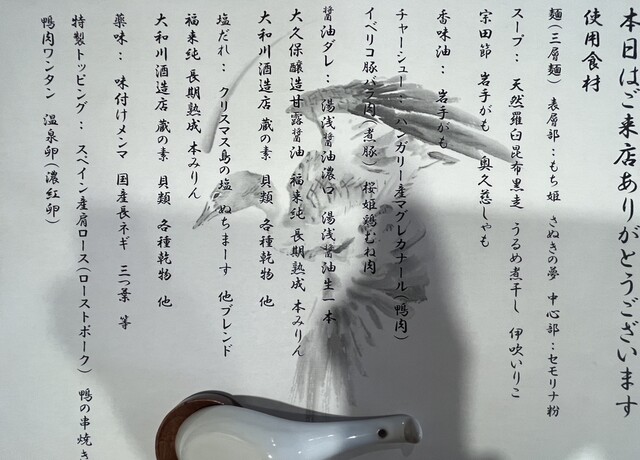 本日はご来店ありがとうございます
使用食材
麺(三層麺) 表層部:もち姫 さぬきの夢 中心部:セモリナ粉
スープ: 天然羅臼昆布黒走 うるめ煮干し 伊吹いりこ
宗田節 岩手がも 奥久慈しゃも
香味油: 岩手がも
チャーシュー: ハンガリー産マグレカナール(鴨肉)
イベリコ豚バラ肉(煮豚) 桜姫鶏むね肉
醤油ダレ: 湯浅醤油濃口 湯浅醤油生一本
大久保醸造甘露醤油 福来純 長期熟成 本みりん
大和川酒造店 蔵の素 貝類 各種乾物 他
塩だれ: クリスマス島の塩 ぬちまーす 他ブレンド
福来純 長期熟成 本みりん
大和川酒造店 蔵の素 貝類 各種乾物 他
薬味: 味付けメンマ 国産長ネギ 三つ葉 等
特製トッピング: スペイン産肩ロース(ローストポーク) 鴨の串焼き
鴨肉ワンタン 温泉卵(濃紅卵)